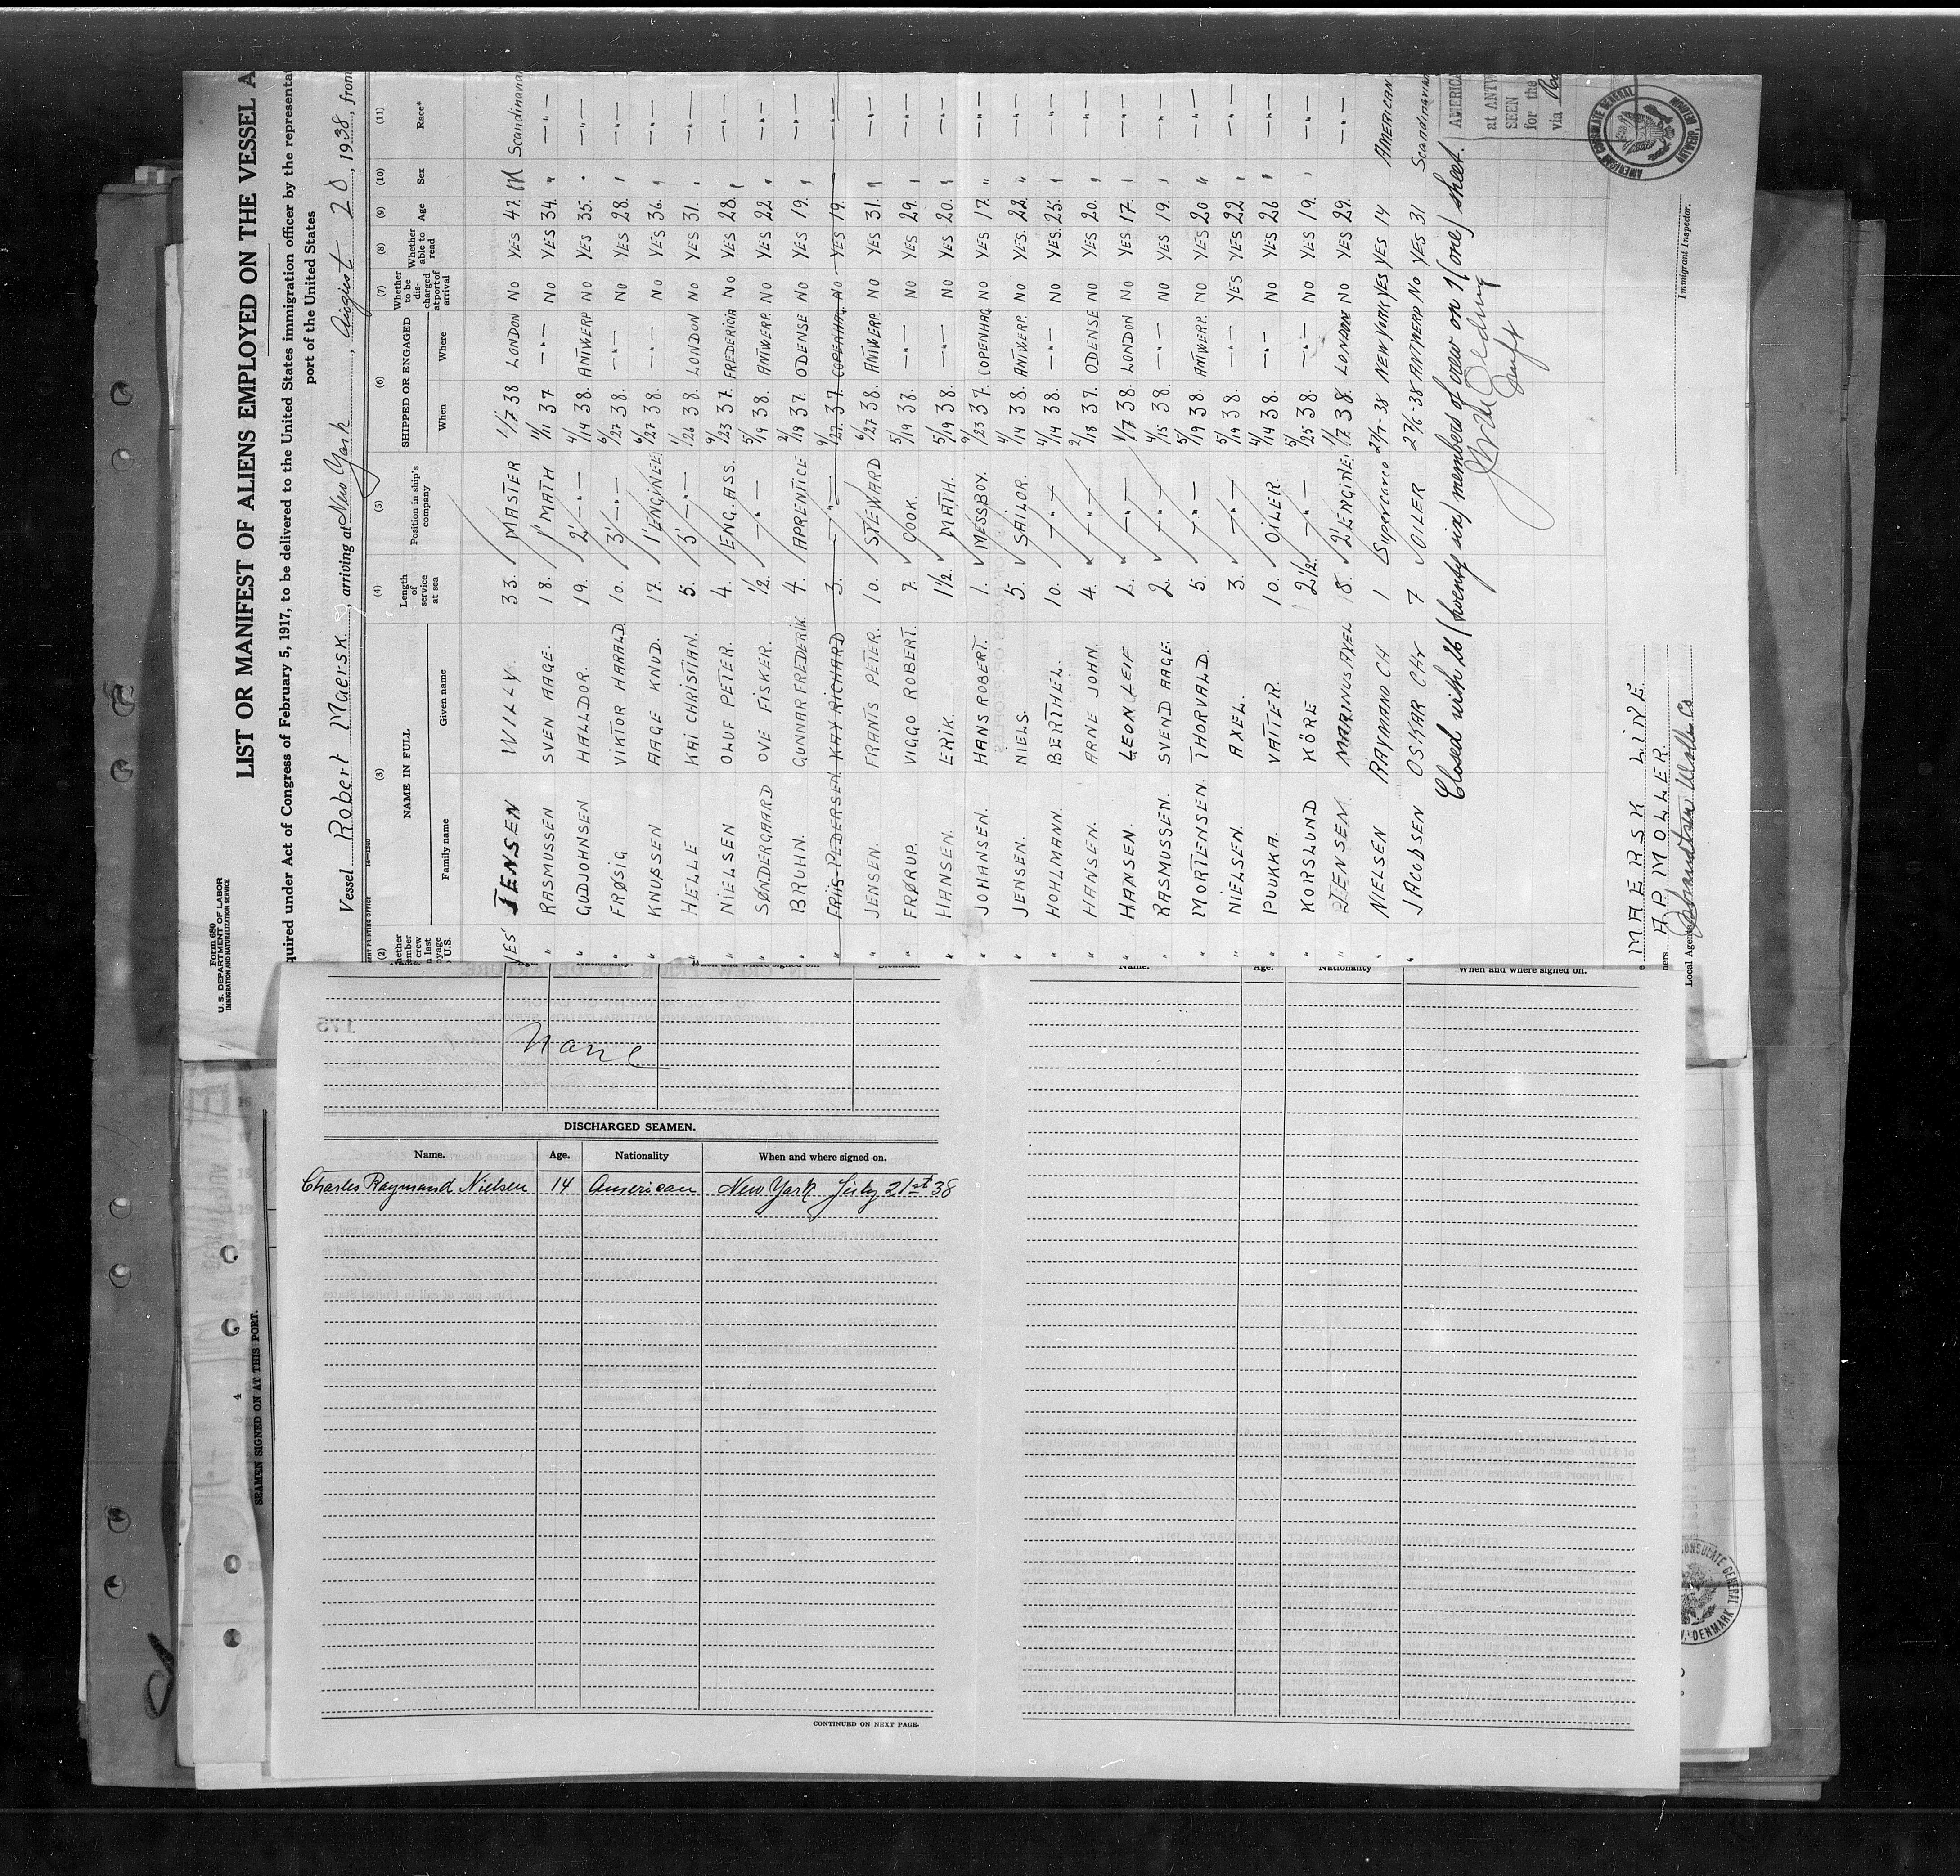 Form 689
U. S. DEPARTMENT OF LABOR
IMMIGRATION AND NATURALIZATION SERVICE
LIST OR MANIFEST OF ALIENS EMPLOYED ON THE VESSEL A
quired under Act of Congress of February 5, 1917, to be delivered to the United States immigration officer by the representa
port of the United States
Vessel Robert Maersk, arriving at New York, August 20, 1938, from
(2) (3) (4) (5) (6) (7) (8) (9) (10) (11)
NAME IN FULL Length of service at sea Position in ship's company SHIPPED OR ENGAGED Whether to be discharged at port of arrival Whether able to read Age Sex Race*
Family name Given name When Where
YES JENSEN WILLY. 33. MASTER 1/7 38 LONDON NO YES 47. M Scandinavian
" RASMUSSEN SVEN AAGE. 18. 1' MATH 11/11 37 —"— NO YES 34. " —"—
" GUDJOHNSEN HALLDOR. 19. 2' —"— 4/19 38. ANTWERP NO YES 35. " —"—
" FRØSIG VIKTOR HARALD 10. 3' —"— 6/27 38. —"— NO YES 28. " —"—
" KNUSSEN AAGE KNUD. 17. 1' ENGINEE 6/27 38. —"— NO YES 36. " —"—
" HELLE KAI CHRISTIAN. 5. 3' —"— 1/26 38. LONDON NO YES 31. " —"—
" NIELSEN OLUF PETER. 4. ENG. ASS. 9/23 37. FREDERICIA NO YES 28. " —"—
" SØNDERGAARD OVE FISKER. 1/2. —"— 5/19 38. ANTWERP. NO YES 22. " —"—
" BRUHN. GUNNAR FREDERIK 4. APRENTICE 2/18 37. ODENSE NO YES 19. " —"—
" FRIIS-PEDERSEN. KAY RICHARD 3. —"— 9/27. 37. COPENHAG. NO YES 19. " —"—
" JENSEN. FRANTS PETER. 10. STEWARD 6/27 38. ANTWERP. NO YES 31. " —"—
" FRØRUP. VIGGO ROBERT. 7. COOK. 5/19 38. —"— NO YES 29. " —"—
" HANSEN. ERIK. 1 1/2. MATH. 5/19 38. —"— NO YES 20. " —"—
" JOHANSEN. HANS ROBERT. 1. MESSBOY. 9/23 37. COPENHAG. NO YES 17. " —"—
" JENSEN. NIELS. 5. SAILOR. 4/14 38. ANTWERP. NO YES. 22. " —"—
" HOHLMANN. BERTHEL. 10. —"— 4/14 38. —"— NO YES. 25. " —"—
" HANSEN. ARNE JOHN. 4. —"— 2/18 37. ODENSE NO YES 20. " —"—
" HANSEN. LEON LEIF 1. —"— 1/17 38. LONDON NO YES 17. " —"—
" RASMUSSEN. SVEND AAGE. 2. —"— 4/15 38. —"— NO YES 19. " —"—
" MORTENSEN. THORVALD. 5. —"— 5/19 38. ANTWERP. NO YES 20 " —"—
" NIELSEN. AXEL. 3. —"— 5/19 38. —"— YES YES 22 " —"—
" PUUKKA. VAITER. 10. OILER. 4/14 38. —"— NO YES 26 " —"—
" KORSLUND KÖRE 2 1/2. —"— 5/25 38. —"— NO YES 19. " —"—
" JENSEN MARINUS AXEL 18. 2' ENGINE. 1/7 38. LONDON NO YES 29. —"—
" NIELSEN RAYMAND CH 1 Supercarco 27/7-38 NEW YORK YES YES 14 AMERICAN
" JACOBSEN OSKAR CHR 7 OILER 27/6-38 ANTWERP NO YES 31 Scandinavian
Closed with 26 (twenty six) members of crew on 1 (one) sheet.
AMERICA
at ANTW
SEEN
for the
via
AMERICAN CONSULATE GENERAL ANTWERP, BELGIUM
Immigrant Inspector.
MAERSK LINE
ners A.P. MOLLER.
Local Agents
None
Name. Age. Nationality When and where signed on.
DISCHARGED SEAMEN.
Name. Age. Nationality When and where signed on.
Charles Raymand Nielsen 14 American New York July 21st 38
CONTINUED ON NEXT PAGE.
SEAMEN SIGNED ON AT THIS PORT.
4
175
16
17
19
21
CONSULATE GENERAL
DENMARK